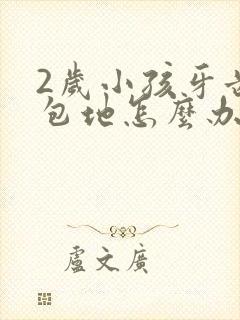 2歲小孩牙
包地怎麼办
盧文廣